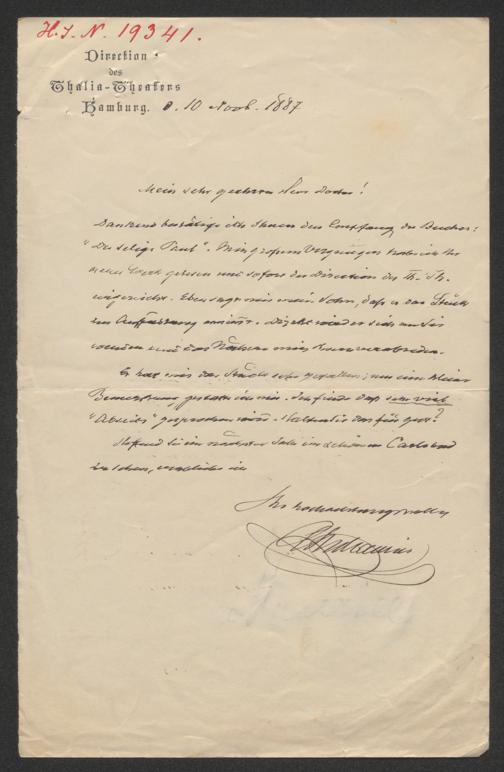 H.I.N. 19341.
Direction
des
Thalia-Theaters
Hamburg. d. 10 Novb. 1887
Mein sehr geehrter Herr Doctor!
Dankend bestätige ich Ihnen den Empfang des Buches:
"Der selige Paul". Mit großem Vergnügen habe ich Ihr
neues Werk gelesen und sofort der Direction des Th. Th.
eingereicht. Eben sagt mir mein Sohn, daß er das Stück
zur Aufführung annimt. Direkt wird er sich an Sie
wenden und das Nähere mit Ihnen verabreden.
Es hat mir das Stück sehr gefallen; nur eine kleine
Bemerkung gestatten Sie mir. Ich finde daß sehr viel
"Abseits" gesprochen wird. Halten Sie das für gut?
Hoffend Sie im nächsten Jahr im schönen Carlsbad
zu sehen, verbleibe ich
Ihr hochachtungsvoller